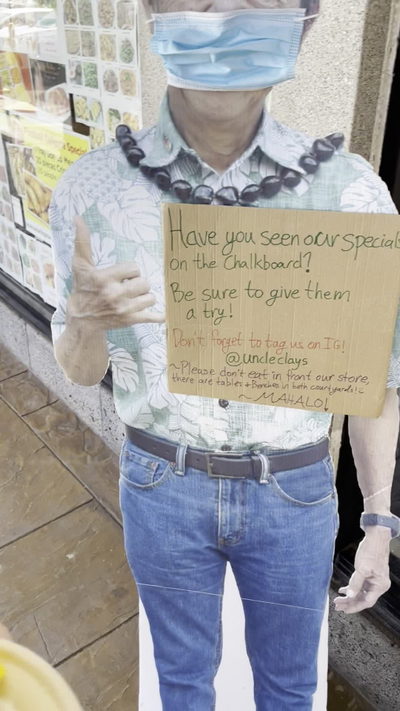 Have you seen our specials
on the Chalkboard?
Be sure to give them
a try!
Don't forget to tag us on IG!
@uncleclays
~Please don't eat in front our store,
there are tables + Benches in both courtyards!
~MAHALO!